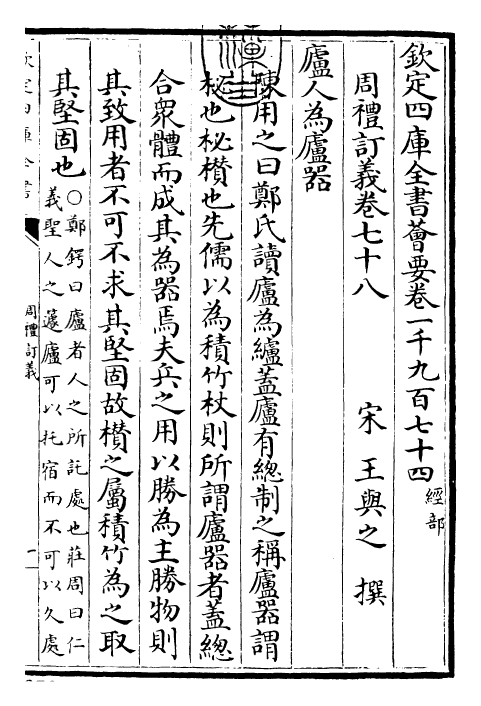 欽定四庫全書薈要卷一千九百七十四經部
周禮訂義卷七十八　宋　王與之　撰
廬人為廬器
陳用之曰鄭氏讀廬為纑蓋廬有總制之稱廬器謂
柲也柲欑也先儒以為積竹杖則所謂廬器者蓋總
合衆體而成其為器焉夫兵之用以勝為主勝物則
其致用者不可不求其堅固故欑之屬積竹為之取
其堅固也○鄭鍔曰廬者人之所託處也莊周曰仁
義聖人之蘧廬可以托宿而不可以久處
欽定四庫全書
周禮訂義
一